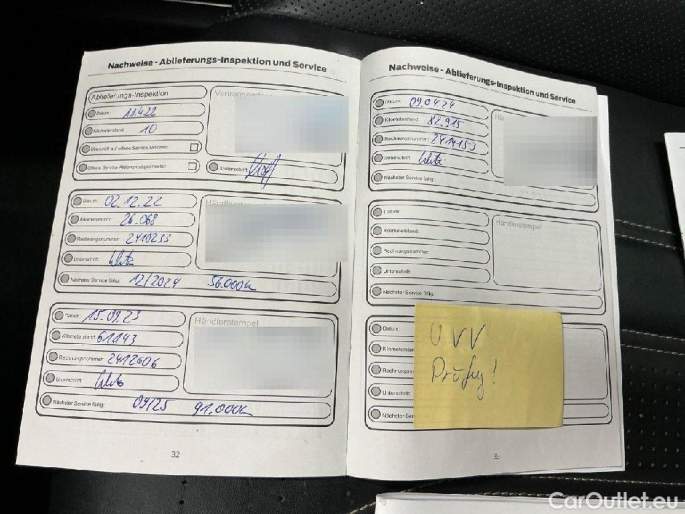 Nachweise - Ablieferungs-Inspektion und Service
Ablieferungs-Inspektion
Datum: 1.1.4.22
Kilometerstand: 10
Unterschrift:
Datum: 02.12.22
Kilometerstand: 26.068
Rechnungsnummer: 2410255
Unterschrift:
Nächster Service fällig: 12/2024 56.000km
Händlerstempel
Datum: 15.09.23
Kilometerstand: 61.143
Rechnungsnummer: 2412606
Unterschrift:
Nächster Service fällig: 09/25 91.000km
Händlerstempel
32
Nachweise - Ablieferungs-Inspektion und Service
Datum: 09.04.24
Kilometerstand:
Rechnungsnummer:
Unterschrift:
Nächster Service fällig:
Datum:
Kilometerstand:
Rechnungsnummer:
Unterschrift:
Nächster Service fällig:
Händlerstempel
Datum:
Unterschrift:
Nächster Service
UVV
Prüfg!
CarOutlet.eu